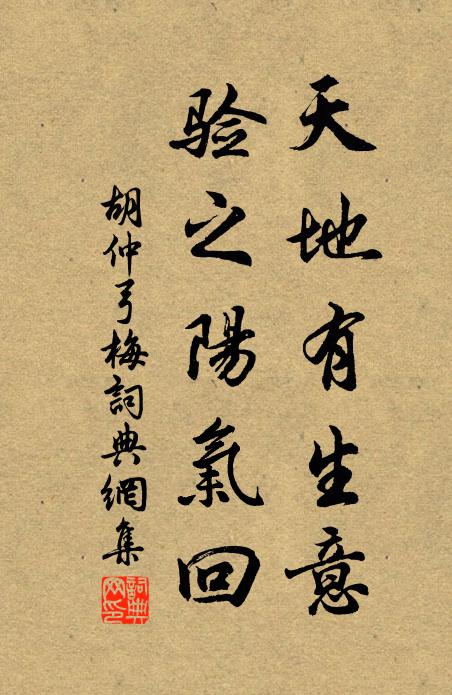 天地有生意
验之陽氣回
胡仲弓梅詞典網集
詞典网印